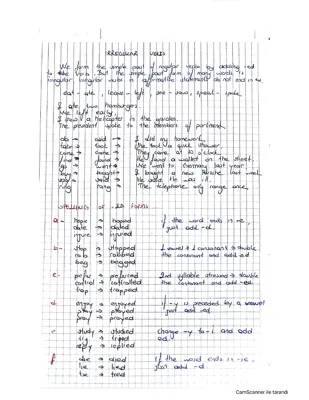 IRREGULAR VERBS
We form the simple past of regular verbs by adding -ed
to the verb. But the simple past form of many verbs is
irregular irregular verbs in affirmative statements do not end in -ed.
eat - ate, leave - left, see - saw, speak - spoke
I ate two hamburgers.
We left early.
I saw a helicopter in the garden.
The president spoke to the members of parliment.
do → did → I did my homework.
take → took → I took a quick shower.
come → came → They came at 10 o'clock.
find → found → He found a wallet on the street.
go → went → We went to Germany last year.
buy → bought → I bought a new last week.
say → said → He said He was ill.
ring → rang → The telephone only rang once.
Spellings of -ED forms
a- hope → hoped if the word ends in -e,
date → dated just add -d.
injure → injured
b- stop → stopped 1 vowel + 1 consonant → double
rob → robbed the consonant and add -ed
beg → begged
c- prefer → preferred 2nd syllable stressed → double
control → controlled the consonant and add -ed.
trap → trapped
d enjoy → enjoyed if -y is preceded by a vowel
stay → stayed just add -ed.
pray → prayed
e study → studied change -y to -i and add
try → tried ed.
reply → replied
f die → died If the word ends in -ie,
lie → lied just add -d.
tie → tied
CamScanner ile tarandı